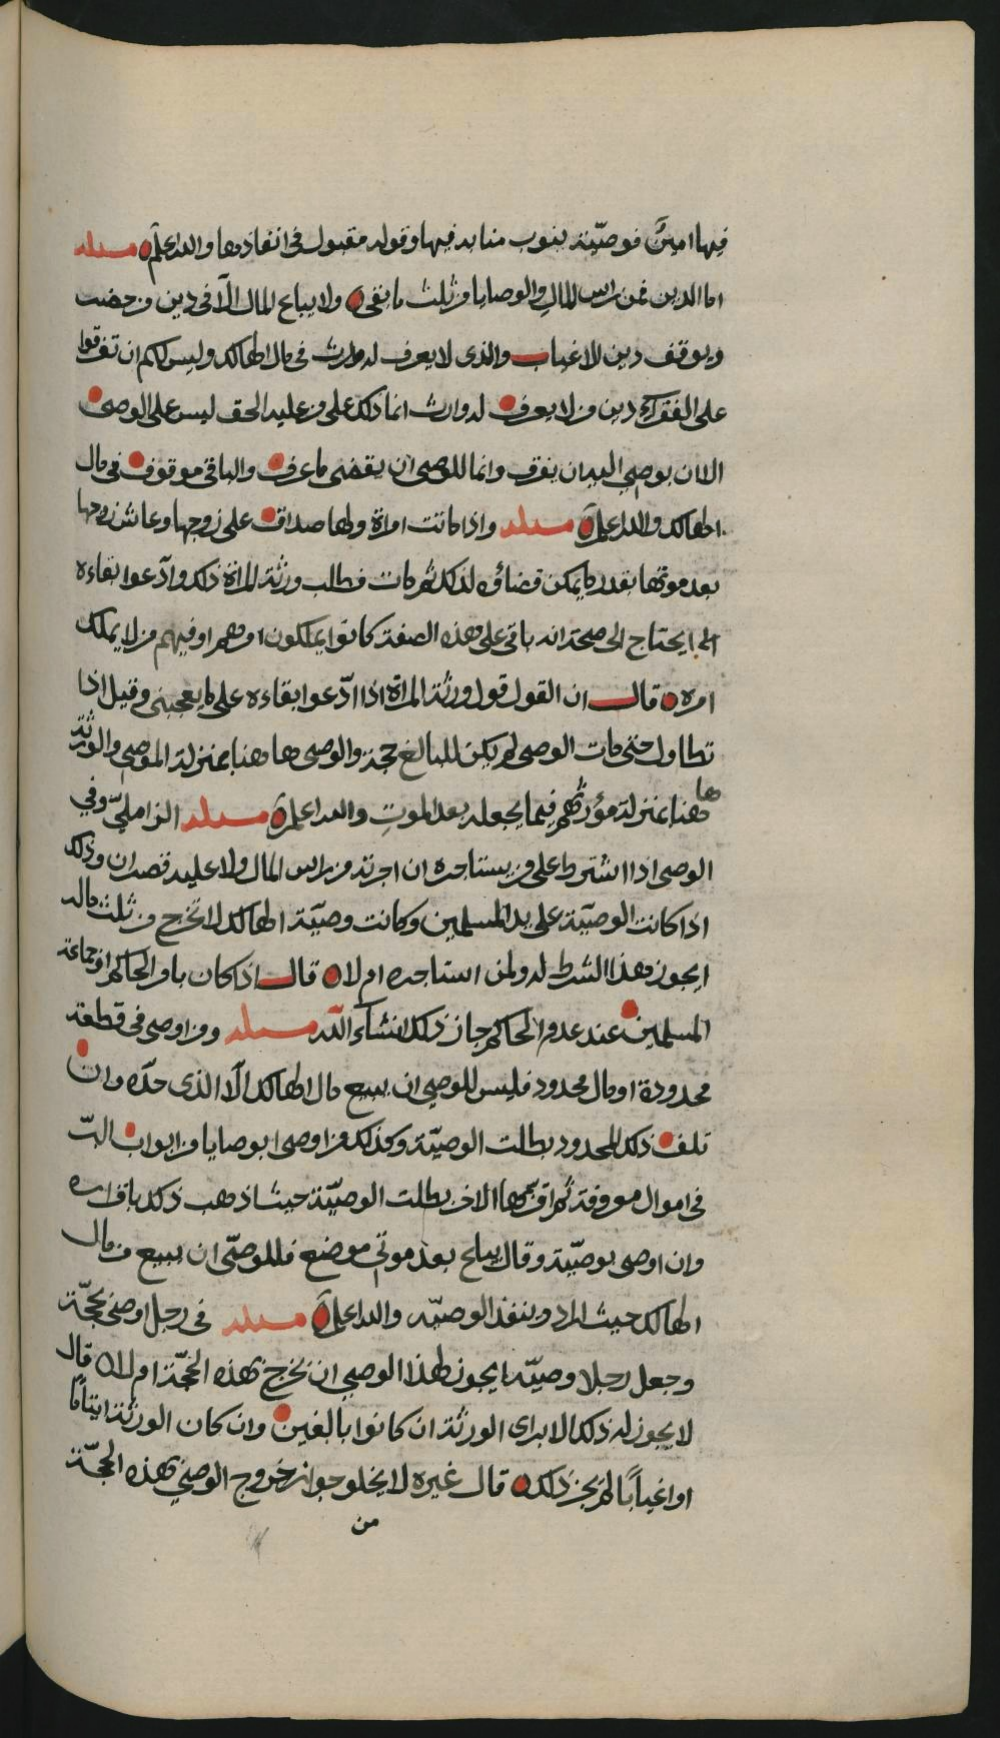 فيها امين فوصيّته ينوب منابه فيها وقوله مقبول في انفاذها والله اعلم مسئله
اما الدين فمن راس المال والوصايا من ثلث ما بقي ولا يباع المال الّا في دين من حضر
ويوقف دين الاغياب والذي لا يعرف له وارث في مال الهالك وليس لكم ان تفرّقوا
على الفقراء دين من لا يعرف له وارث انما ذلك على من عليه الحق ليس على الوصي
الا ان يوصي اليه ان يفرق وانما للوصي ان يقضي ما عرف والباقي موقوف في مال
الهالك والله اعلم مسئله واذا ماتت امراة ولها صداق على زوجها وعاش زوجها
بعد موتها بقدر ما يمكن قضاؤه لذلك ثم مات فطلب ورثة المراة ذلك وادّعوا بقاءه
ايحتاج الى صحة انه باقي على هذه الصفة كانوا يملكون امرهم او فيهم من لا يملك
امره قال ان القول قول ورثة المراة اذا ادّعوا بقاءه على ما يعجبني وقيل اذا
تطاول حتى مات الوصي لم يكن للبالغ حجة والوصي هاهنا بمنزلة الموصي والورثة
هاهنا بمنزلة مؤرثهم فيما يجعله بعد الموت والله اعلم مسئله الزامليّ وفي
الوصي اذا اشترط على من يستاجره ان اجرته من راس المال ولا عليه نقصان وذلك
اذا كانت الوصيّة على يد المسلمين وكانت وصيّة الهالك لا تخرج من ثلث ماله
ايجوز هذا الشرط له ولمن استاجره ام لا قال اذا كان بامر الحاكم او جماعة
المسلمين عند عدم الحاكم جاز ذلك انشاء الله مسئله ومن اوصى في قطعة
محدودة او مال محدود فليس للوصي ان يبيع مال الهالك الّا الذي حدّه وان
تلف ذلك المحدود بطلت الوصيّة وكذلك من اوصى بوصايا من ابواب البرّ
في اموال موقوفة ثم اقر بها لاخر بطلت الوصيّة حيث اذهب ذلك باقراره
وان اوصى بوصيّة وقال يباع بعد موتي موضع فللوصيّ ان يبيع من مال
الهالك حيث اراد وينفذ الوصيّه والله اعلم مسئله في رجل اوصى بحجّة
وجعل رجلا وصيّه ايجوز لهذا الوصي ان يخرج بهذه الحجّة ام لا قال
لا يجوز له ذلك الا براي الورثة ان كانوا بالغين وان كان الورثة ايتامًا
او اغيابًا لم يجز ذلك قال غيره لا يخلو جواز خروج الوصي بهذه الحجّة
من